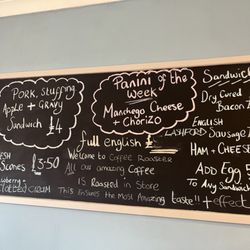 Pork, Stuffing
Apple + Gravy
Sandwich £4
Panini of the
Week
Manchego Cheese
+ Chorizo
Sandwich
Dry Cured
Bacon
full english £
ENGLISH
Sausa
Ham + Cheese
Add Egg 5
To Any Sandwi
ESH
Scones £3.50
Welcome to Coffee Roaster
All our amazing Coffee
Is Roasted in Store
This Ensures the Most Amazing taste!! + effect